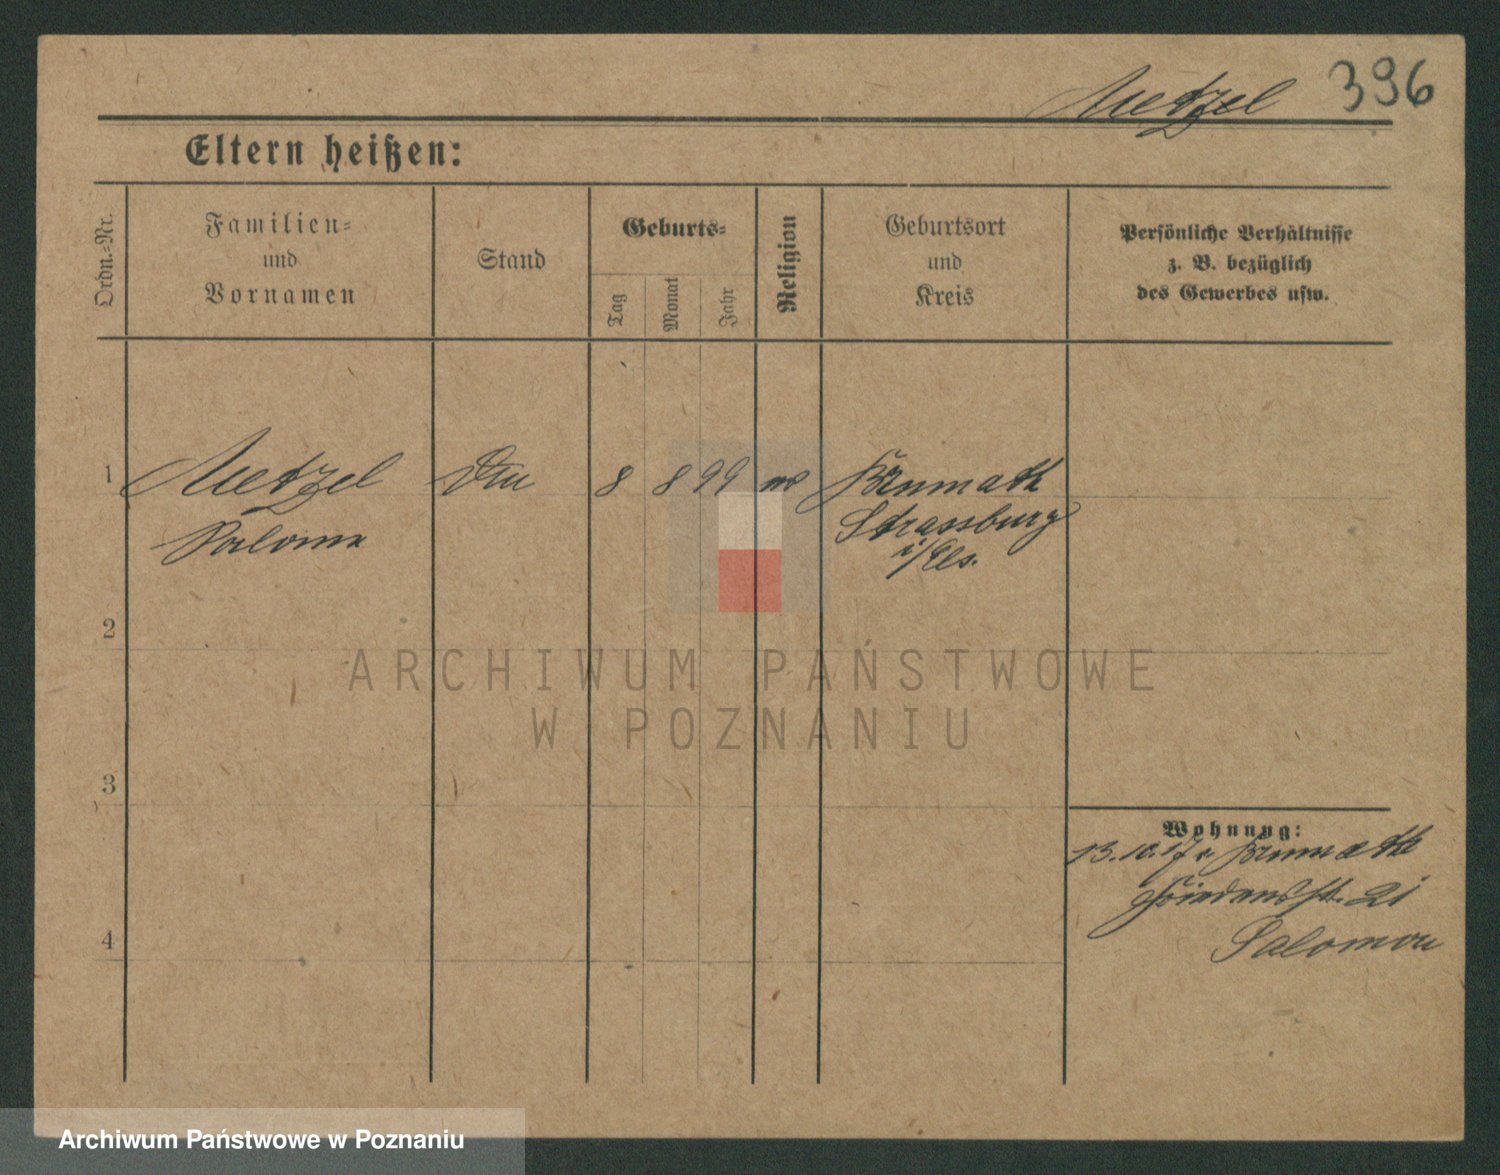 Metzel 396
Eltern heißen:
Ordn.-Nr.
Familien-
und
Vornamen
Stand
Geburts-
Tag
Monat
Jahr
Religion
Geburtsort
und
Kreis
Persönliche Verhältnisse
z. B. bezüglich
des Gewerbes usw.
1 Metzel 8 8 99 Brumath
Strassburg
i/Els.
2
ARCHIWUM PAŃSTWOWE
W POZNANIU
3
Wohnung:
13.10.17 v. Brumath
21
4
Salomon
Archiwum Państwowe w Poznaniu